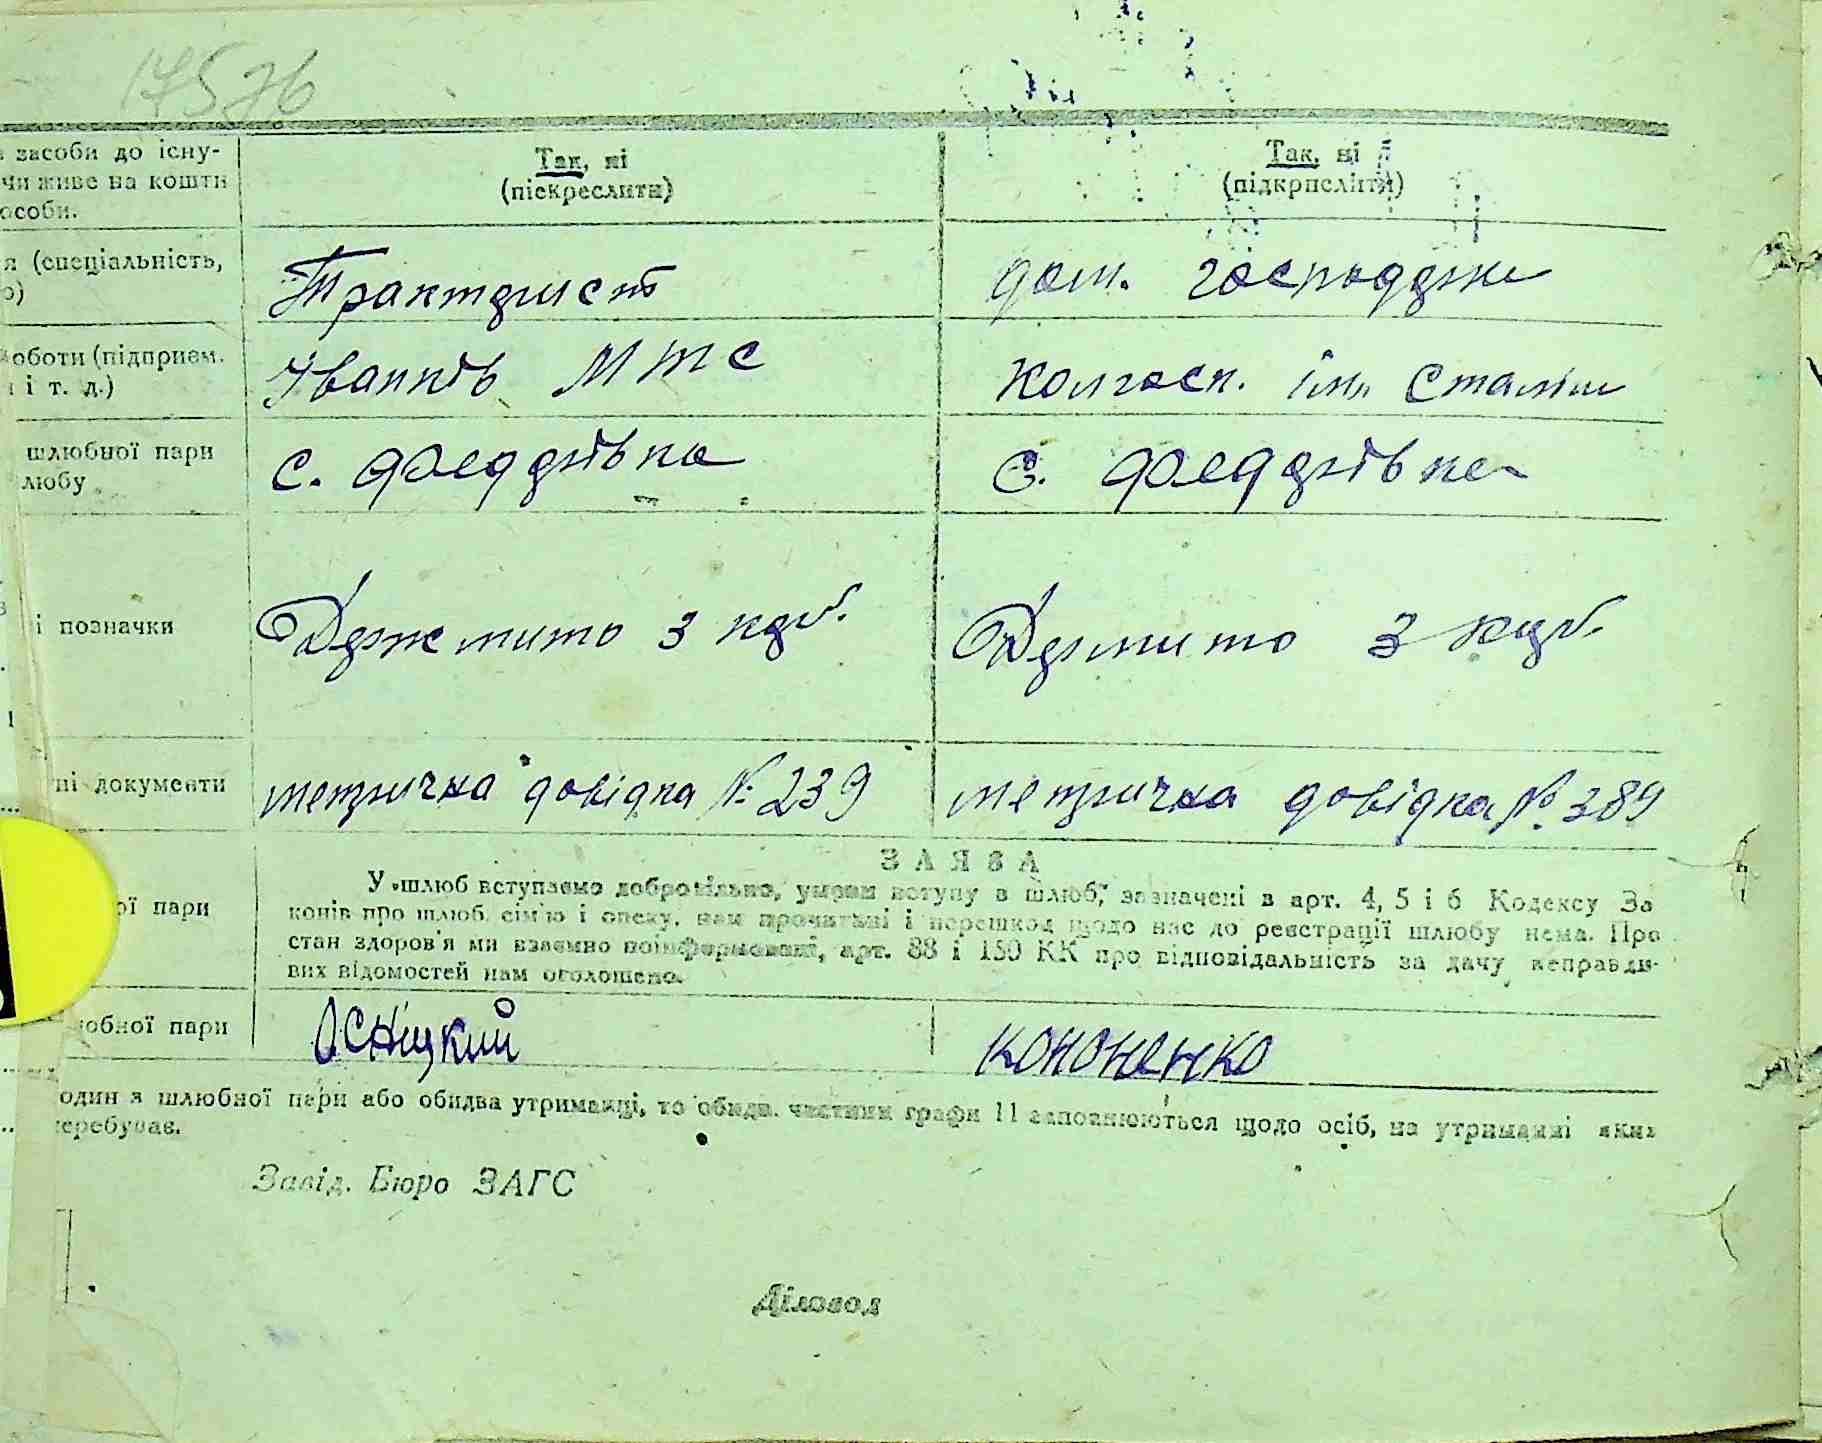 17576
засоби до існу-
чи живе на кошти
особи.
Так, ні
(піскреслити)
Так, ні
(підкрислити)
я (спеціальність,
о)
Тракторист
дом.
оботи (підприєм.
і т. д.)
Іванків МТС
Колгосп. імн Сталін
шлюбної пари
любу
с.
с.
і позначки
Держмито 3 крб.
Дермито 3 крб.
ні документи
метрична довідка № 239
метрична довідка № 389
ої пари
ЗАЯВА
У шлюб вступаємо добровільно, умови вступу в шлюб, зазначені в арт. 4, 5 і 6 Кодексу За
конів про шлюб, сім'ю і опеку, нам прочитані і перешкод щодо нас до реєстрації шлюбу нема. Про
стан здоров'я ми взаємно поінформовані, арт. 88 і 150 КК про відповідальність за дачу неправди-
вих відомостей нам оголошено.
юбної пари
Осніцкий
Кононенко
один з шлюбної пари або обидва утриманці, то обидв. частини графи 11 заповнюються щодо осіб, на утриманні яких
перебуває.
Завід. Бюро ЗАГС
Діловод